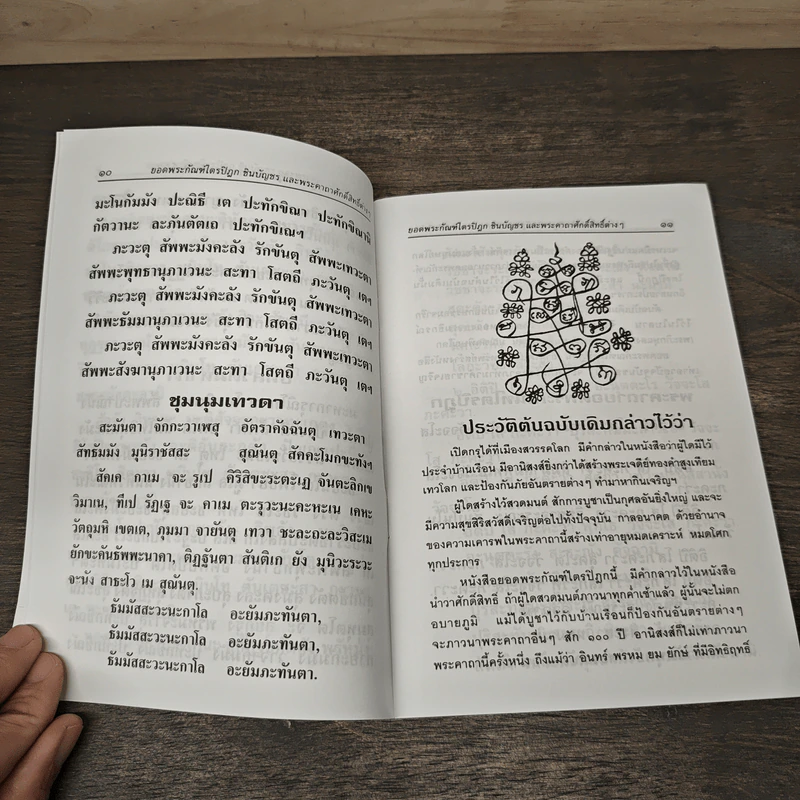 ๑๐ ยอดพระกัณฑ์ไตรปิฎก ชินบัญชร และพระคาถาศักดิ์สิทธิ์ต่างๆ
มะโนกัมมัง ปะณิธี เต ปะทักขิณา ปะทักขิณานิ
กัตวานะ ละภันตัตเถ ปะทักขิเณฯ
ภะวะตุ สัพพะมังคะลัง รักขันตุ สัพพะเทวะตา
สัพพะพุทธานุภาเวนะ สะทา โสตถี ภะวันตุ เตฯ
ภะวะตุ สัพพะมังคะลัง รักขันตุ สัพพะเทวะตา
สัพพะธัมมานุภาเวนะ สะทา โสตถี ภะวันตุ เตฯ
ภะวะตุ สัพพะมังคะลัง รักขันตุ สัพพะเทวะตา
สัพพะสังฆานุภาเวนะ สะทา โสตถี ภะวันตุ เตฯ
ชุมนุมเทวดา
สะมันตา จักกะวาเพสุ อัตราคัจฉันตุ เทวะตา
สัทธัมมัง มุนิราชัสสะ สุณันตุ สัคคะโมกขะทังฯ
สัคเค กาเม จะ รูเป คิริสิขะระตะเฏ จันตะลิกเข
วิมาเน, ทีเป รัฏเฐ จะ คาเม ตะรุวะนะคะหะเน เคหะ
วัตถุมหิ เขตเต, ภุมมา จายันตุ เทวา ชะละถะละวิสะเม
ยักขะคันธัพพะนาคา, ติฏฐันตา สันติเก ยัง มุนิวะระวะ
จะนัง สาธะโว เม สุณันตุ.
ธัมมัสสะวะนะกาโล อะยัมภะทันตา,
ธัมมัสสะวะนะกาโล อะยัมภะทันตา,
ธัมมัสสะวะนะกาโล อะยัมภะทันตา.
ยอดพระกัณฑ์ไตรปิฎก ชินบัญชร และพระคาถาศักดิ์สิทธิ์ต่างๆ ๑๑
ประวัติต้นฉบับเดิมกล่าวไว้ว่า
เปิดกรุได้ที่เมืองสวรรคโลก มีคำกล่าวในหนังสือว่าผู้ใดมีไว้
ประจำบ้านเรือน มีอานิสงส์ยิ่งกว่าได้สร้างพระเจดีย์ทองคำสูงเทียม
เทวโลก และป้องกันภัยอันตรายต่างๆ ทำมาหากินเจริญฯ
ผู้ใดสร้างไว้สวดมนต์ สักการบูชาเป็นกุศลอันยิ่งใหญ่ และจะ
มีความสุขสิริสวัสดิ์เจริญต่อไปทั้งปัจจุบัน กาลอนาคต ด้วยอำนาจ
ของความเคารพในพระคาถานี้สร้างเท่าอายุหมดเคราะห์ หมดโศก
ทุกประการ
หนังสือยอดพระกัณฑ์ไตรปิฎกนี้ มีคำกล่าวไว้ในหนังสือ
นำวาศักดิ์สิทธิ์ ถ้าผู้ใดสวดมนต์ภาวนาทุกค่ำเช้าแล้ว ผู้นั้นจะไม่ตก
อบายภูมิ แม้ได้บูชาไว้กับบ้านเรือนก็ป้องกันอันตรายต่างๆ
จะภาวนาพระคาถาอื่นๆ สัก ๑๐๐ ปี อานิสงส์ก็ไม่เท่าภาวนา
พระคาถานี้ครั้งหนึ่ง ถึงแม้ว่า อินทร์ พรหม ยม ยักษ์ ที่มีอิทธิฤทธิ์